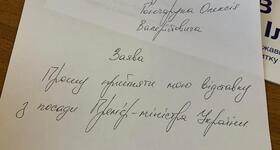 Гончарука Олексія
Валерійовича
Заява
Прошу прийняти мою відставку
з посади Прем'єр-міністра України
В